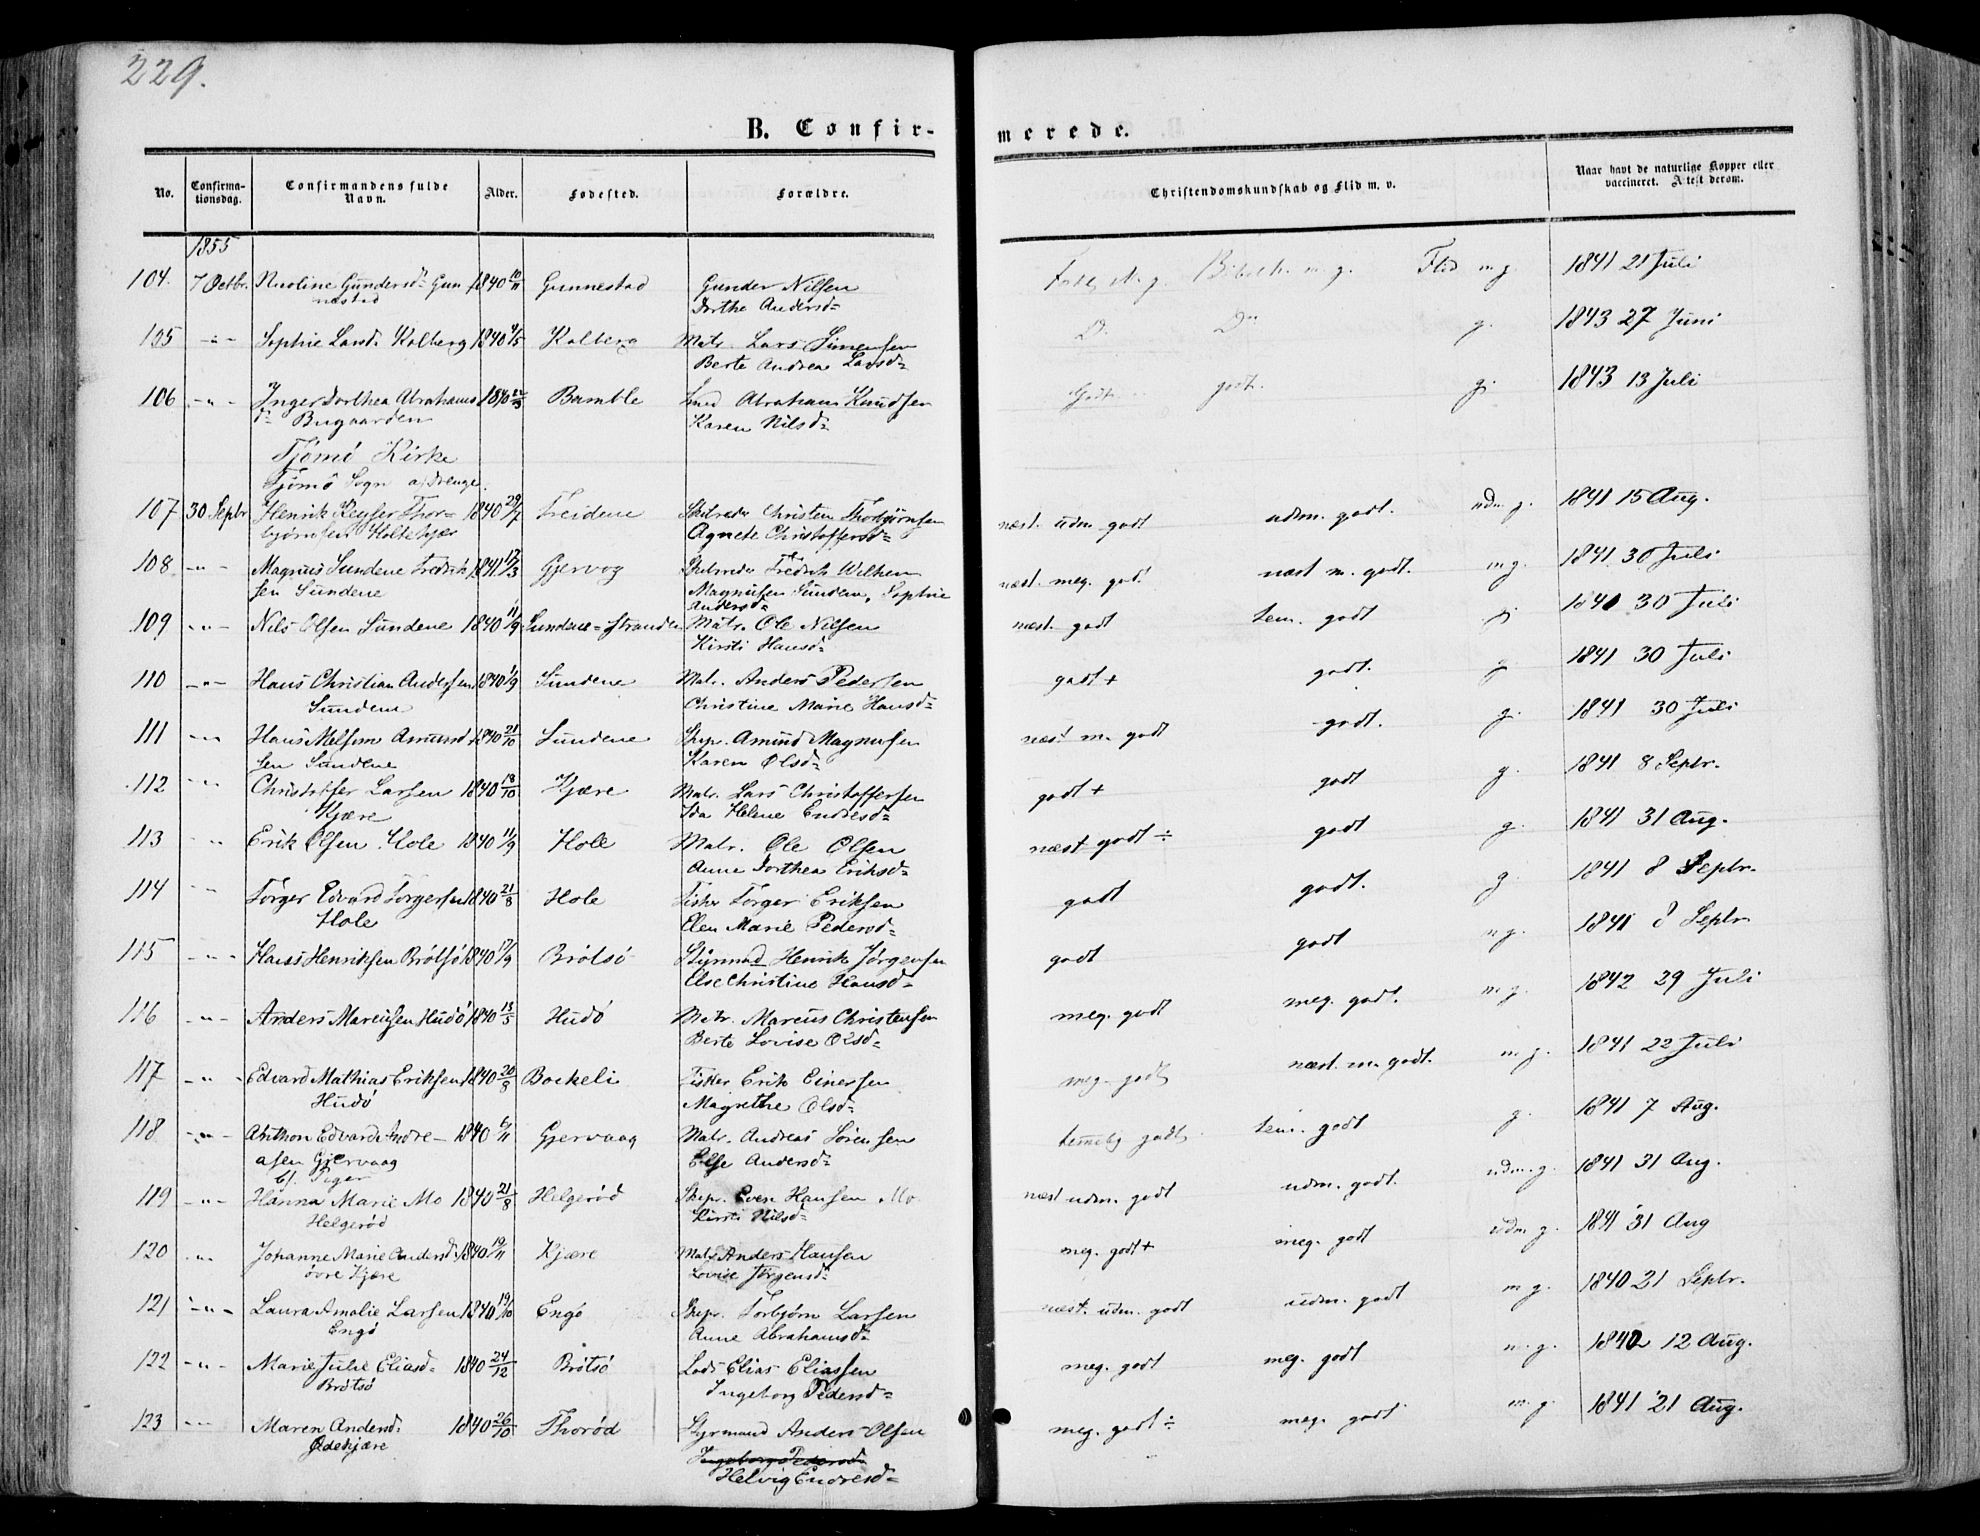 229.
B. Confir-
merede.
No.
Confirma-
tionsdag.
Confirmandens fulde
Navn.
Alder.
Fødested.
Forældre.
Christendomskundskab og Flid m. v.
Naar havt de naturlige Kopper eller
vaccineret. Attest derom.
1855
104. 7 Octbr. Gundersd. Gun 1840 10/11 Gunnestad Gunder Nilsen m. g. Flid m g. 1841 21 Juli
nestad Dorthe Andersd=
105 -"- Sophie Larsd. Kolberg 1840 4/5 Kolberg Matr. Lars Simensen D. Do g. 1843 27 Juni
Berte Andrea Larsd=
106 -"- Inger Dorthea Abrahams 1840 Bamble Abraham Knudsen Godt godt. g. 1843 13 Juli
d= Bugaarden Karen Nilsd=
Tjømø Kirke
Tjømø Sogn a) Drenge.
107 30 Septbr Henrik Keyser Thor= 1840 29/7 Treidene Skibsreder Christen Thorbjørnsen næst. udm. godt udm. godt. udm. g. 1841 15 Aug.
bjørnsen Holtekjær Agnete Christoffersd=
108. -"- Magnus Sundene Fredrik 1841 17/3 Gjervog Skibsreder Fredrik Wilhem næst. meg. godt næst m. godt. m g. 1841 30 Juli
sen Sundene Magnusen Sundene, Sophie
Andersd=
109 -"- Nils Olsen Sundene 1840 11/9 Sundene=stranden Matr. Ole Nilsen næst. godt tem. godt g. 1840 30 Juli
Kirsti Hansd=
110 -"- Hans Christian Andersen 1840 1/9 Sundene Matr. Anders Pedersen godt + godt. g 1841 30 Juli
Sundene Christine Marie Hansd=
111 -"- Hans Melsom Amund 1840 21/10 Sundene Skipr. Amund Magnusen næst m. godt godt. g. 1841 30 Juli
sen Sundene Karen Olsd=
112 -"- Christoffer Larsen 1840 18/10 Kjære Matr. Lars Christoffersen godt + godt g. 1841 8 Septr.
Kjære Ida Helene Endresd=
113 -"- Erik Olsen Hole 1840 11/9 Hole Matr. Ole Olsen næst godt ÷ godt g. 1841 31 Aug.
Anne Dorthea Eriksd=
114 -"- Torger Edvard Torgersen 1840 21/8 Hole Fisker Torger Eriksen godt godt. g. 1841 8 Septr.
Hole Elen Marie Pedersd=
115 -"- Hans Henriksen Brøtsø 1840 17/9 Brøtsø Styrmand Henrik Jørgensen godt godt m g. 1841 8 Septr
Else Christine Hansd=
116 -"- Anders Marcusen Hudø 1840 13/5 Hudø Matr. Marcus Christensen meg. godt meg. godt. m g. 1842 29 Juli
Berte Lovise Olsd=
117 -"- Edvard Mathias Eriksen 1840 20/8 Boekeli Fisker Erik Einersen meg. godt næst. m. godt. m. g. 1841 22 Juli
Hudø Magrethe Olsd=
118 -"- Anthon Edvard Andre- 1840 6/11 Gjervaag Matr. Andreas Sørensen temelig godt tem. godt g. 1841 7 Aug.
asen Gjervaag Else Andersd=
b). Piger
119 -"- Hanna Marie Mo 1840 21/8 Helgerød Skipr. Even Hansen Mo næst udm. godt udm. godt. udm. g. 1841 31 Aug.
Helgerød Kirsti Nilsd=
120 -"- Johanne Marie Andersd. 1840 19/11 Kjære Matr Anders Hansen meg. godt + meg. godt udm g. 1841 31 Aug
øvre Kjære Lovise Jørgensd=
121 -"- Laura Amalie Larsen 1840 19/10 Engø Skipr. Torbjørn Larsen næst. udm. godt udm. godt m g. 1840 21 Septr.
Engø Anne Abrahamsd=
122 -"- Marie Julie Eliasd= 1840 24/12 Brøtsø Lods Elias Eliassen meg. godt meg. godt m. g. 1842 12 Aug.
Brøtsø Ingeborg Pedersd=
123 -"- Maren Andersd. 1840 26/10 Thorød Styrmand Anders Olsen meg. godt ÷ meg. godt m. g. 1841 21 Aug.
Ødekjære Ingeborg Pedersd=
Helvig Endresd=